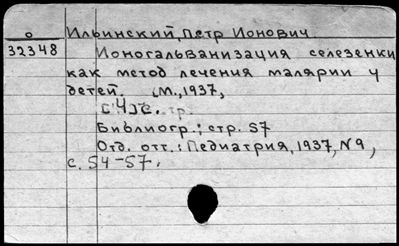 о Ильинский, Петр Ионович.
32348 Ионогальванизация селезенки
как метод лечения малярии у
детей. [М., 1937,
[4]с.
Библиогр.: стр. 57
Отд. отт.: Педиатрия, 1937, N9,
с. 54-57.